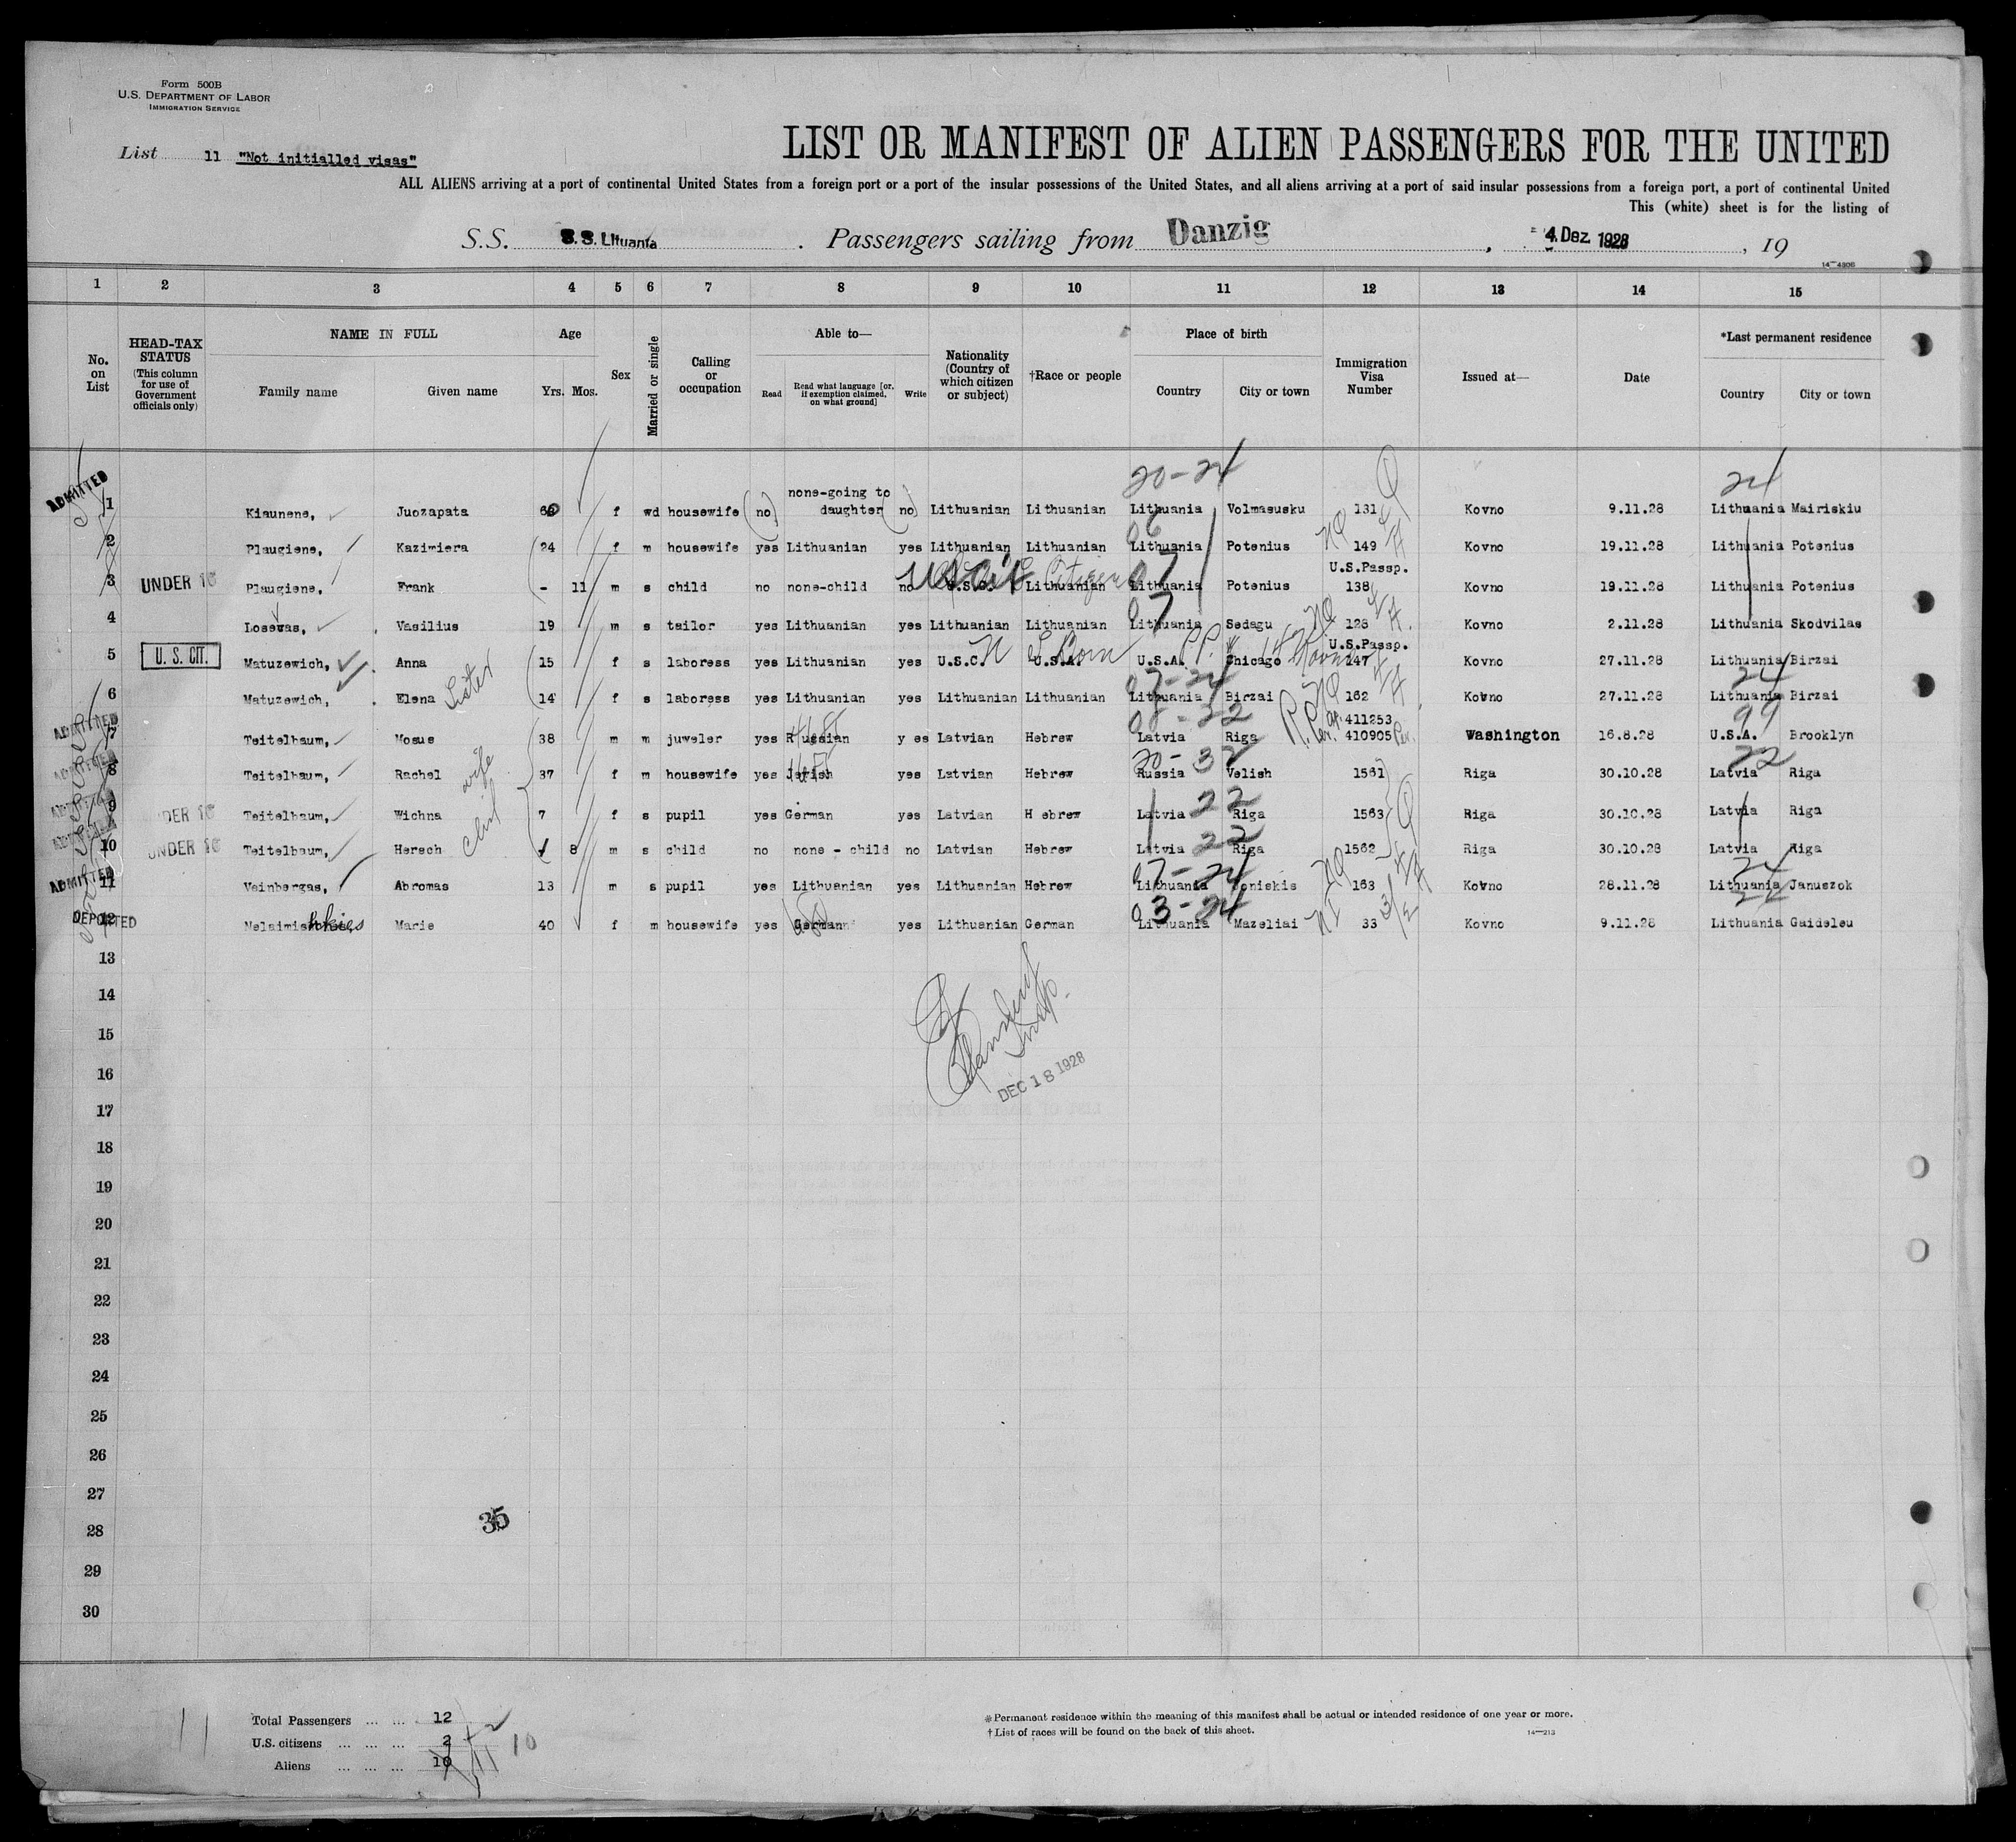 Form 500B
U.S. DEPARTMENT OF LABOR
IMMIGRATION SERVICE
List 11 "Not initialled visas"
LIST OR MANIFEST OF ALIEN PASSENGERS FOR THE UNITED
ALL ALIENS arriving at a port of continental United States from a foreign port or a port of the insular possessions of the United States, and all aliens arriving at a port of said insular possessions from a foreign port, a port of continental United
This (white) sheet is for the listing of
S.S. S.S. Lituania . Passengers sailing from Danzig , 4. Dez. 1928 , 19
14—4306
1 2 3 4 5 6 7 8 9 10 11 12 13 14 15
No. on List
HEAD-TAX STATUS (This column for use of Government officials only)
NAME IN FULL
Family name Given name
Age
Yrs. Mos.
Sex
Married or single
Calling or occupation
Able to—
Read Read what language [or, if exemption claimed, on what ground] Write
Nationality (Country of which citizen or subject)
†Race or people
Place of birth
Country City or town
Immigration Visa Number
Issued at—
Date
*Last permanent residence
Country City or town
20-24 24
ADMITTED 1 Kiaunene, Juozapata f wd housewife (no) none-going to daughter (no) Lithuanian Lithuanian Lithuania Volmasusku 131 Kovno 9.11.28 Lithuania Mairiskiu
2 Plaugiene, Kazimiera 24 f m housewife yes Lithuanian yes Lithuanian Lithuanian Lithuania Potenius 149 Kovno 19.11.28 Lithuania Potenius
U.S.Passp.
3 UNDER 16 Plaugiene, Frank - 11 m s child no none-child no U.S.C. Lithuanian Lithuania Potenius 138 Kovno 19.11.28 Lithuania Potenius
4 Losevas, Vasilius 19 m s tailor yes Lithuanian yes Lithuanian Lithuanian Lithuania Sedagu 128 Kovno 2.11.28 Lithuania Skodvilas
U.S.Passp.
5 U. S. CIT. Matuzewich, Anna 15 f s laboress yes Lithuanian yes U.S.C. U.S.A. U.S.A. Chicago 147 Kovno 27.11.28 Lithuania Birzai
6 Matuzewich, Elena Sister 14 f s laboress yes Lithuanian yes Lithuanian Lithuanian Lithuania Birzai 162 Kovno 27.11.28 Lithuania Birzai
411253
ADMITTED 7 Teitelbaum, Mosus 38 m m juveler yes Russian y es Latvian Hebrew Latvia Riga 410905 Washington 16.8.28 U.S.A. Brooklyn
ADMITTED 8 Teitelbaum, Rachel wife 37 f m housewife yes Jevish yes Latvian Hebrew Russia Velish 1561 Riga 30.10.28 Latvia Riga
ADMITTED 9 UNDER 16 Teitelbaum, Wichna 7 f s pupil yes German yes Latvian H ebrew Latvia Riga 1563 Riga 30.10.28 Latvia Riga
ADMITTED 10 UNDER 16 Teitelbaum, Hersch 8 m s child no none - child no Latvian Hebrew Latvia Riga 1562 Riga 30.10.28 Latvia Riga
ADMITTED 11 Veinbergas, Abromas 13 m s pupil yes Lithuanian yes Lithuanian Hebrew Lithuania 163 Kovno 28.11.28 Lithuania Januszok
DEPORTED 12 Marie 40 f m housewife yes German yes Lithuanian German Lithuania Mazeliai 33 Kovno 9.11.28 Lithuania Gaideleu
13
14
15
16
DEC 18 1928
17
18
19
20
21
22
23
24
25
26
27
35
28
29
30
Total Passengers ... ... 12
U.S. citizens ... ... ... 2
Aliens ... ... ... 10 11 10
11
*Permanent residence within the meaning of this manifest shall be actual or intended residence of one year or more.
†List of races will be found on the back of this sheet.
14—213